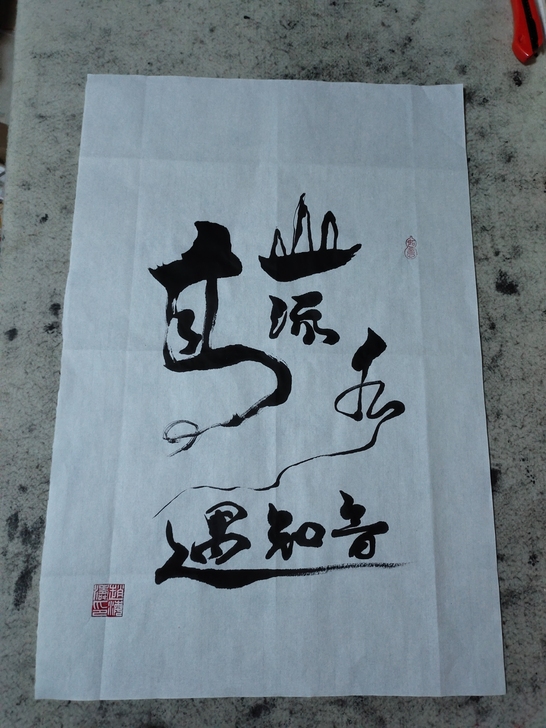 高山
流水
遇知音